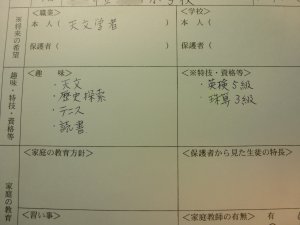 <職業> <学校>
※将来の希望 本人( 天文学者 ) 本人( )
保護者( ) 保護者( )
趣味・特技・資格等 <趣 味> <※特技・資格等>
・天文 ・英検5級
・歴史探索 ・珠算3級
・テニス
・読書
<家庭の教育方針> <保護者から見た生徒の特長>
家庭の教育
<習い事> <家庭教師の有無> 有